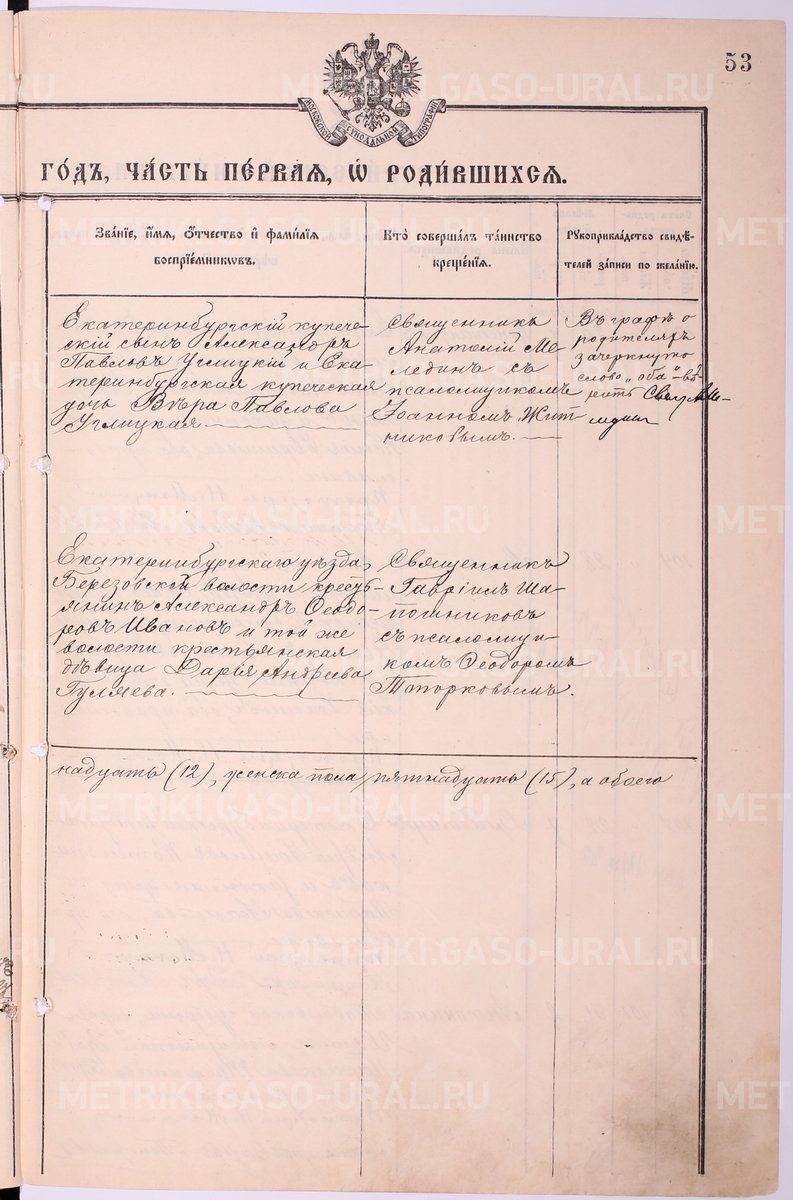 53
МОСКОВСКОЙ СѴНОДАЛЬНОЙ ТИПОГРАФІИ
ГО́ДЪ, ЧА́СТЬ ПЕ́РВАЯ, Ѡ҆ РОДИ́ВШИХСЯ.
ЗВА́НІЕ, И҆́МЯ, Ѻ҆́ТЧЕСТВО И҆ ФАМИ́ЛІЯ
ВОСПРІЕ́МНИКѠВЪ.
КТО̀ СОВЕРША́ЛЪ ТА́ИНСТВО
КРЕЩЕ́НІЯ.
РꙊКОПРИКЛА́ДСТВО СВИДѢ́-
ТЕЛЕЙ ЗА́ПИСИ ПО ЖЕЛА́НІЮ.
Екатеринбургскій купече-
скій сынъ Александръ
Павловъ Углицкій и Ека-
теринбургская купеческая
дочь Вѣра Павлова
Углицкая
Священникъ
Анатолій Ме-
лединъ съ
псаломщикомъ
Іоанномъ Жит
никовымъ.
Въ графѣ о
родителяхъ
зачеркнуто
слово „оба“ - вѣ-
рить Свящ. Ме-
лединъ
Екатеринбургскаго уѣзда,
Березовской волости кресть-
янинъ Александръ Ѳеодо-
ровъ Ивановъ и той же
волости крестьянская
дѣвица Дарья Андреева
Гуляева.
Священникъ
Гавріилъ Ша-
пошниковъ
съ псаломщи-
комъ Ѳеодоромъ
Топорковымъ.
надцать (12), женска пола пятнадцать (15), а обоего
METRIKI.GASO-URAL.RU